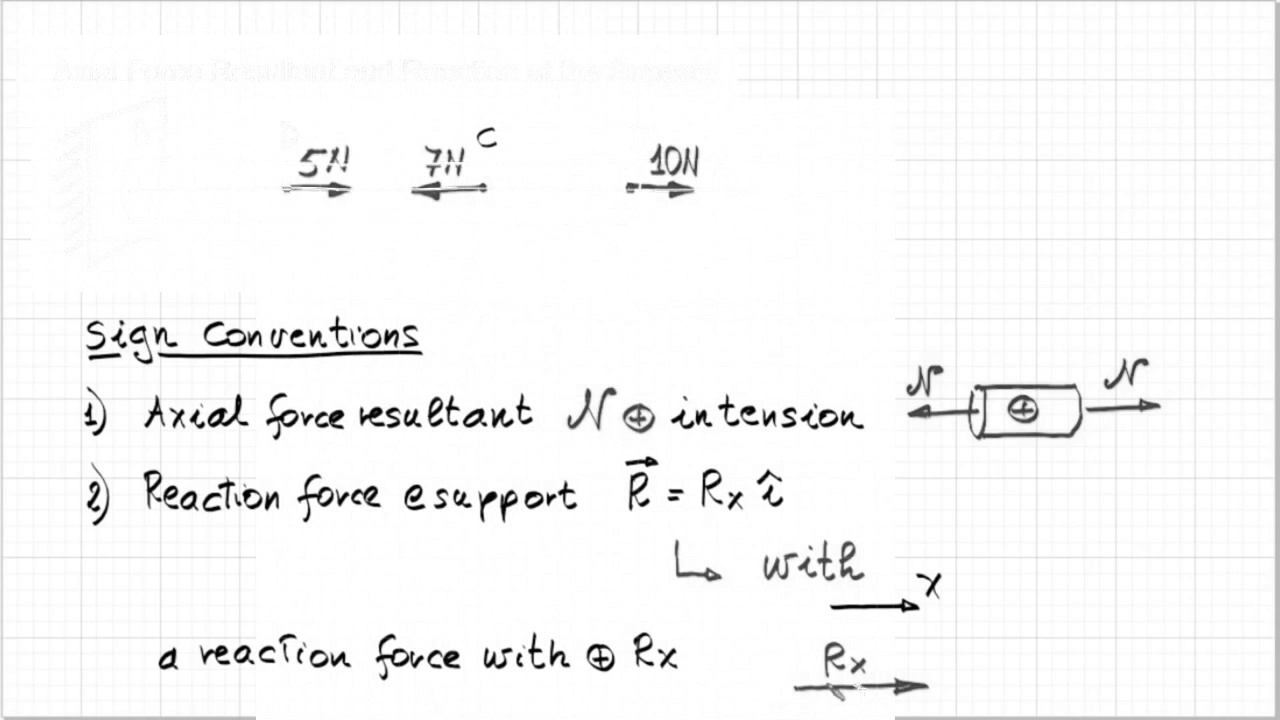 Axial Force Resultant and Reaction at the Support
5N 7N C 10N
Sign Conventions
1) Axial force resultant N ⊕ in tension
N ⊕ N
2) Reaction force @ support R⃗ = Rx î
↳ with
x
a reaction force with ⊕ Rx
Rx